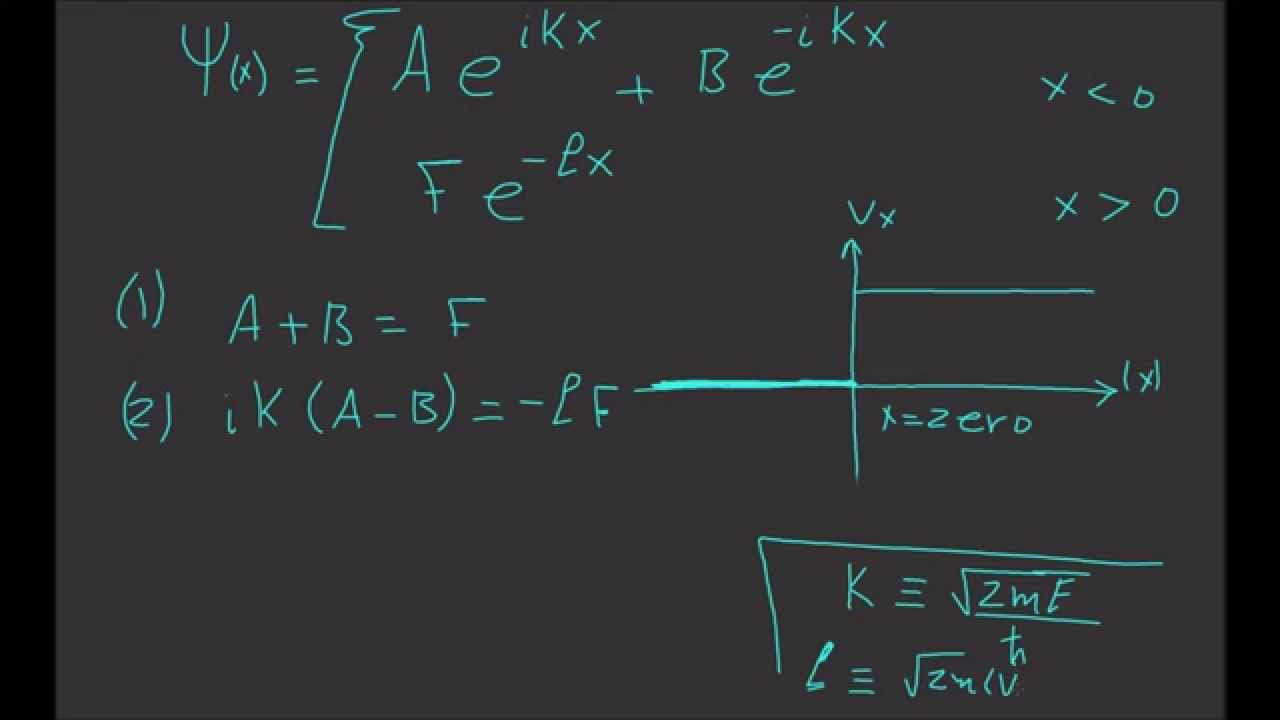 Ψ(x) = { A e^{iKx} + B e^{-iKx} x < 0
F e^{-ℓx} x > 0
Vx
(1) A + B = F
(2) iK(A - B) = -ℓF
(x)
x = zero
K ≡ √2mE / ħ
ℓ ≡ √2m(V